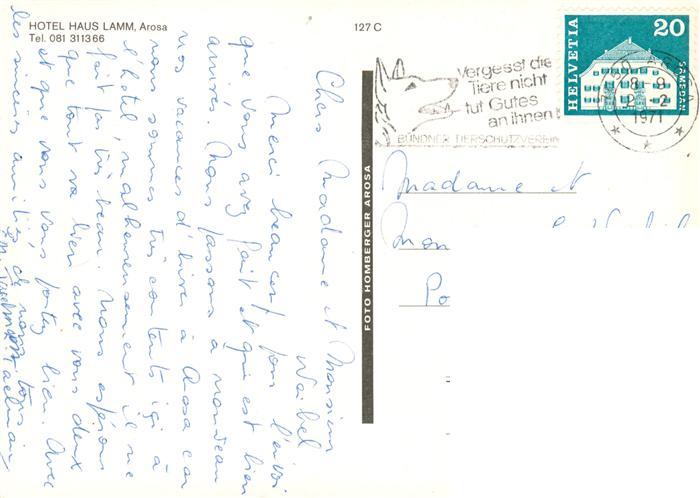 HOTEL HAUS LAMM, Arosa
Tel. 081 311366
127 C
Chers Madame et Monsieur
Waibel
Merci beaucoup pour l'envoi
que vous avez fait et qui est bien
arrivé. Nous passons à nouveau
nos vacances d'hiver à Arosa car
nous sommes très contents ici à
l'hôtel, malheureusement il ne
fait pas très beau. Nous espérons
que tout va bien avec vous deux
et que vous vous portez bien. Avec
les sincères amitiés de nous tous
FOTO HOMBERGER AROSA
Vergesst die
Tiere nicht
tut Gutes
an ihnen!
BÜNDNER TIERSCHUTZVEREIN
HELVETIA
20
SAMEDAN
AROSA
1971
Madame et
Mon
Po